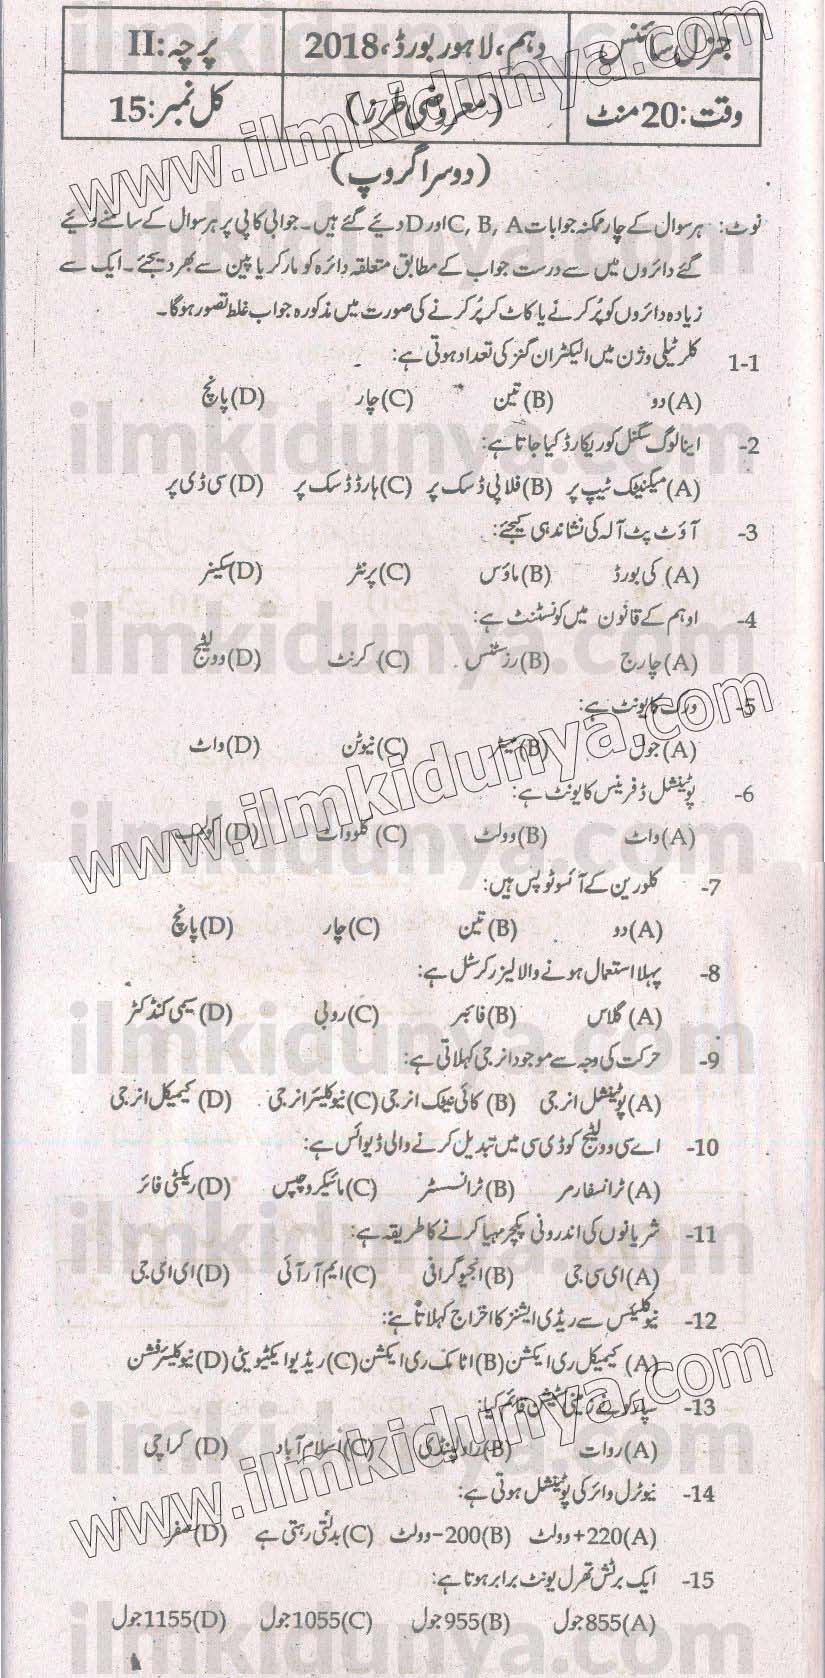 جنرل سائنس دہم، لاہور بورڈ، 2018 پرچہ: II
وقت: 20 منٹ (معروضی طرز) کل نمبر: 15
(دوسرا گروپ)
نوٹ: ہر سوال کے چار ممکنہ جوابات C, B, A اور D دیئے گئے ہیں۔ جوابی کاپی پر ہر سوال کے سامنے دیئے
گئے دائروں میں سے درست جواب کے مطابق متعلقہ دائرہ کو مارکر یا پین سے بھر دیجئے۔ ایک سے
زیادہ دائروں کو پُر کرنے یا کاٹ کر پُر کرنے کی صورت میں مذکورہ جواب غلط تصور ہوگا۔
1-1 کلر ٹیلی وژن میں الیکٹران گنز کی تعداد ہوتی ہے:
(A) دو (B) تین (C) چار (D) پانچ
-2 اینالوگ سگنل کو ریکارڈ کیا جاتا ہے:
(A) میگنیٹک ٹیپ پر (B) فلاپی ڈسک پر (C) ہارڈ ڈسک پر (D) سی ڈی پر
-3 آؤٹ پٹ آلہ کی نشاندہی کیجئے:
(A) کی بورڈ (B) ماؤس (C) پرنٹر (D) سکینر
-4 اوہم کے قانون میں کونسٹنٹ ہے:
(A) چارج (B) رزسٹنس (C) کرنٹ (D) وولٹیج
-5 ورک کا یونٹ ہے:
(A) جول (B) میٹر (C) نیوٹن (D) واٹ
-6 پوٹینشل ڈفرینس کا یونٹ ہے:
(A) واٹ (B) وولٹ (C) کلو واٹ (D)
-7 کلورین کے آئسوٹوپس ہیں:
(A) دو (B) تین (C) چار (D) پانچ
-8 پہلا استعمال ہونے والا لیزر کرسٹل ہے:
(A) گلاس (B) فائبر (C) روبی (D) سیمی کنڈکٹر
-9 حرکت کی وجہ سے موجود انرجی کہلاتی ہے:
(A) پوٹینشل انرجی (B) کائی نیٹک انرجی (C) نیوکلیئر انرجی (D) کیمیکل انرجی
-10 اے سی وولٹیج کو ڈی سی میں تبدیل کرنے والی ڈیوائس ہے:
(A) ٹرانسفارمر (B) ٹرانسسٹر (C) مائیکرو چپس (D) ریکٹی فائر
-11 شریانوں کی اندرونی پکچر مہیا کرنے کا طریقہ ہے:
(A) ای سی جی (B) انجیوگرافی (C) ایم آر آئی (D) ای ای جی
-12 نیوکلیئس سے ریڈی ایشنز کا اخراج کہلاتا ہے:
(A) کیمیکل ری ایکشن (B) اٹامک ری ایکشن (C) ریڈیو ایکٹیویٹی (D) نیوکلیئر فشن
-13 سپارکو نے زمینی سٹیشن قائم کیا:
(A) روات (B) راولپنڈی (C) اسلام آباد (D) کراچی
-14 نیوٹرل وائر کی پوٹینشل ہوتی ہے:
(A) +220 وولٹ (B) -200 وولٹ (C) بدلتی رہتی ہے (D) صفر
-15 ایک برٹش تھرمل یونٹ برابر ہوتا ہے:
(A) 855 جول (B) 955 جول (C) 1055 جول (D) 1155 جول
www.ilmkidunya.com
ilmkidunya.com